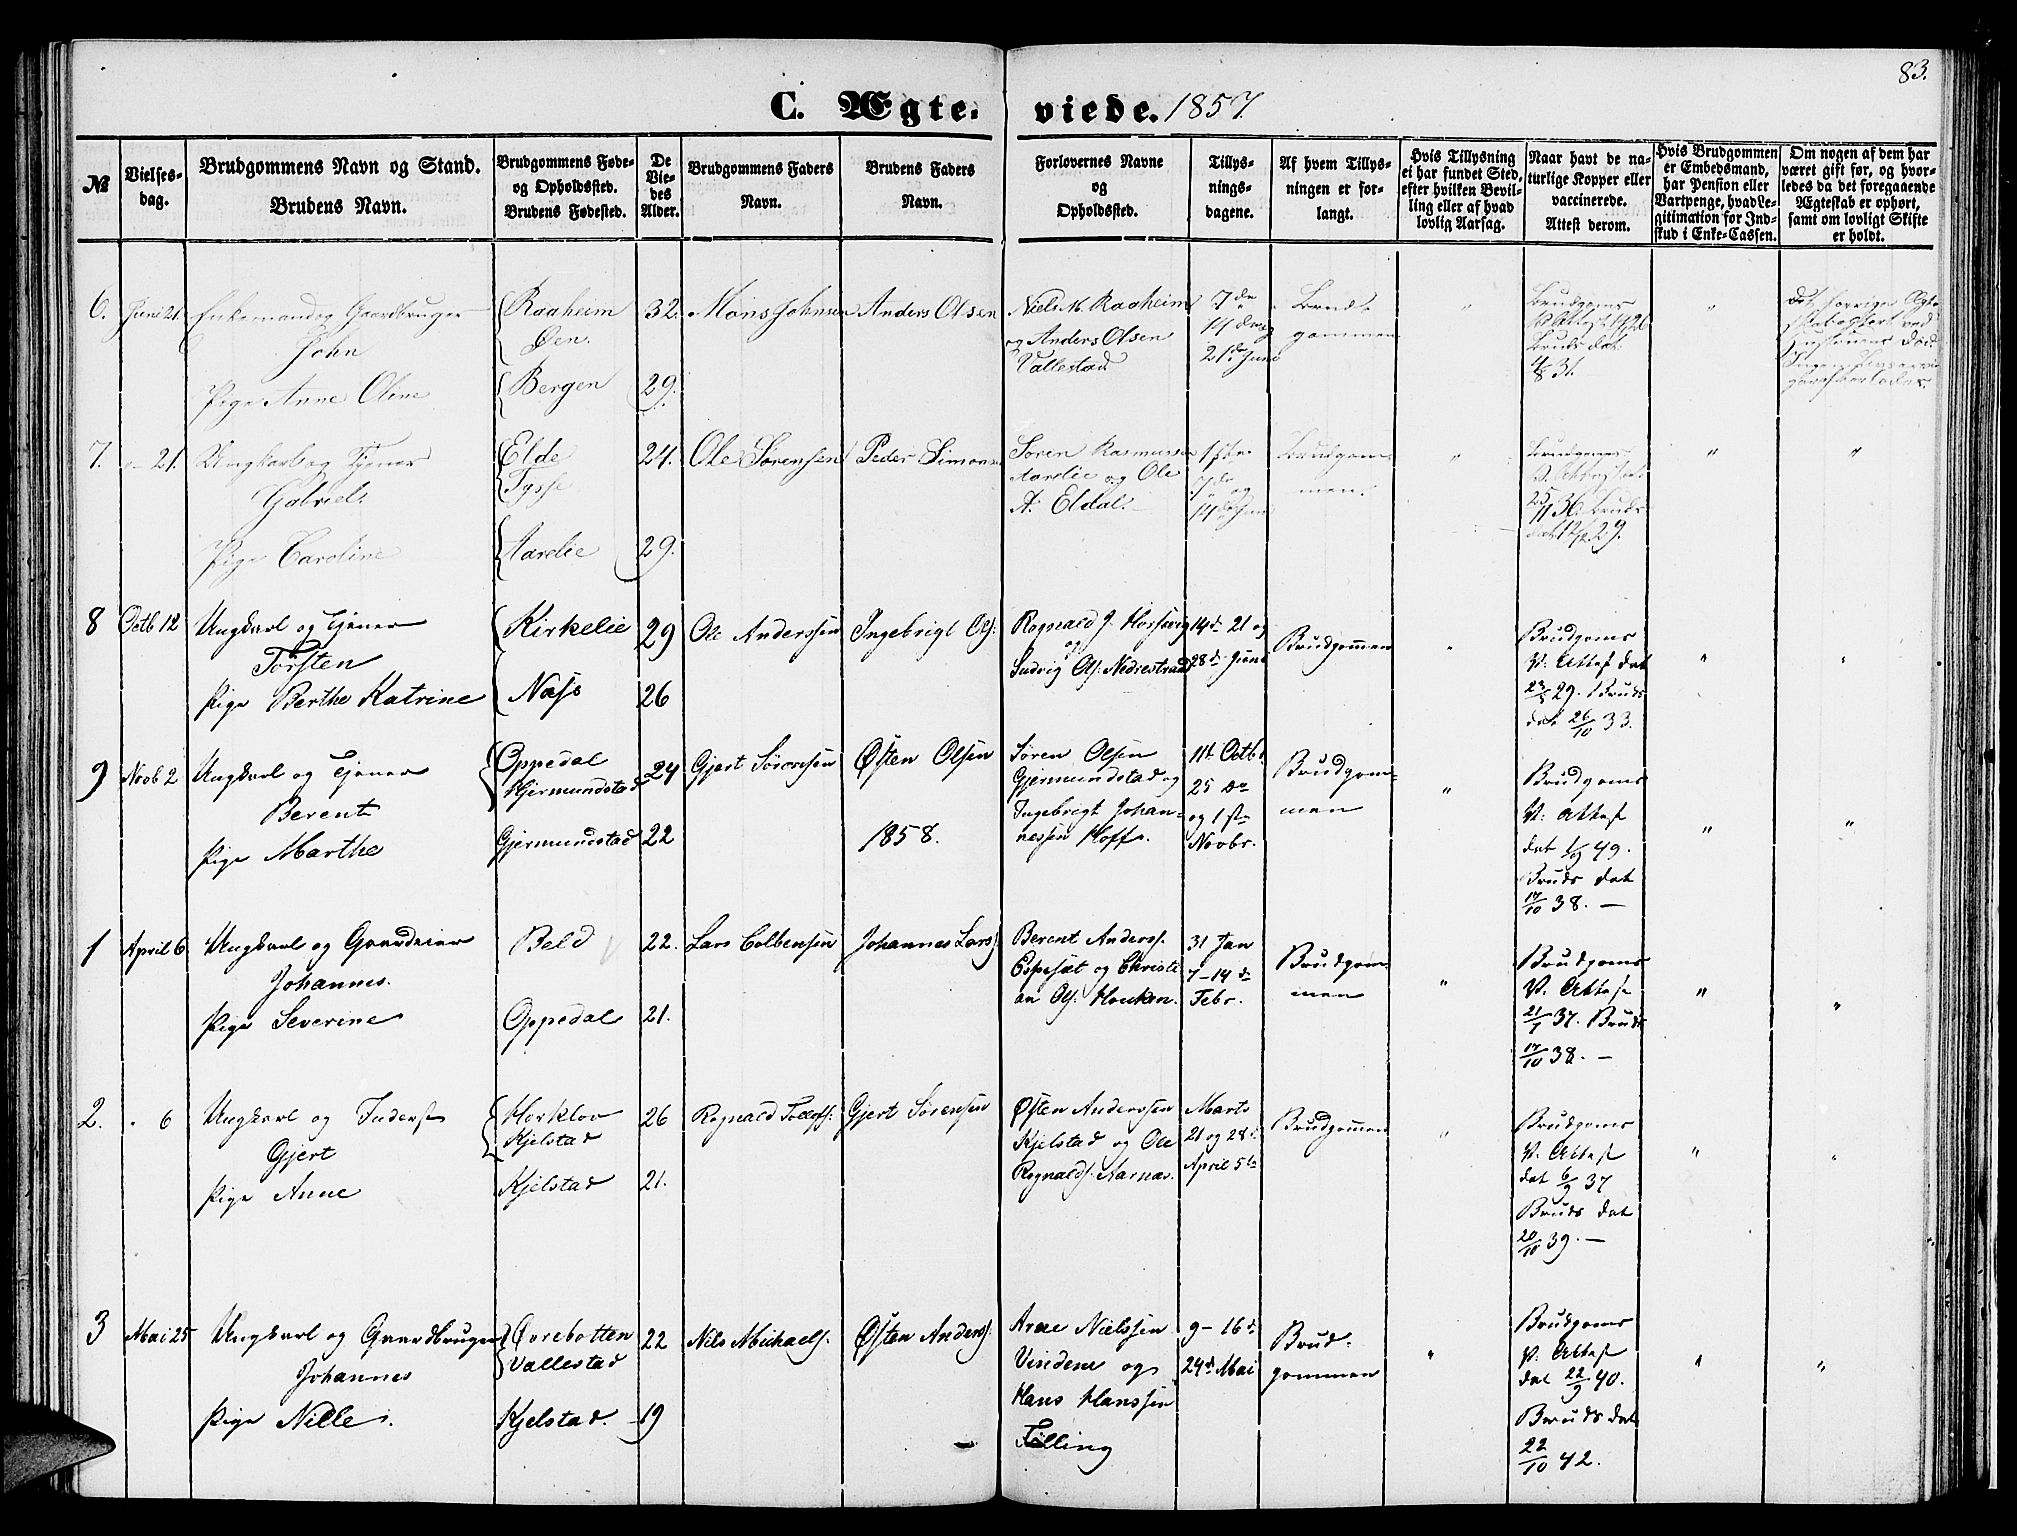 83.
C. Ægte- viede. 1857
№
Vielses-
dag.
Brudgommens Navn og Stand.
Brudens Navn.
Brudgommens Føde-
og Opholdssted.
Brudens Fødested.
De
Vie-
des
Alder.
Brudgommens Faders
Navn.
Brudens Faders
Navn.
Forlovernes Navne
og
Opholdssted.
Tillys-
nings-
dagene.
Af hvem Tillys-
ningen er for-
langt.
Hvis Tillysning
ei har fundet Sted,
efter hvilken Bevil-
ling eller af hvad
lovlig Aarsag.
Naar havt de na-
turlige Kopper eller
vaccinerede.
Attest derom.
Hvis Brudgommen
er Embedsmand,
har Pension eller
Vartpenge, hvad Le-
gitimation for Ind-
skud i Enke-Cassen.
Om nogen af dem har
været gift før, og hvor-
ledes da det foregaaende
Ægteskab er ophørt,
samt om lovligt Skifte
er holdt.
6. Juni 21. Enkemand og Gaardbruger
John
Pige Anne Oline
Raaheim
Øen.
Bergen
32.
29.
Mons Johnsen
Anders Olsen
Niels M. Raaheim
og Anders Olsen
Vallestad
7de
14de og
21de Juni
Brud-
gommen
"
Brudgoms
Bruds dat.
"
7. " 21. Ungkarl og Tjener
Gabriel.
Pige Caroline
Elde
Tysse
Aarelie
24.
29.
Ole Sørensen
Peder Simons
Søren Rasmussen
Aarelie og Ole
A. Eldal.
1ste
7de og
14de Juni
Brudgom-
men.
"
Brudgoms
V. Attest dat.
25/11 36. Bruds
"
"
8 Octb 12 Ungkarl og Tjener
Torsten
Pige Berthe Katrine
Kirkelie
Næss
29
26
Ole Anderssen
Ingebrigt Ols.
Rognald J. Horsevig
og
Ludvig Ols. Nedrestrand
14d 21 og
28d Juni
Brudgommen
"
Brudgoms
V. Attest dat
29. Bruds
dat 26/10 33.
"
"
9 Novb 2 Ungkarl og Tjener
Berent
Pige Marthe
Oppedal
Gjermundstad
Gjermundstad
24
22
Gjert Sørensen
Østen Olsen
1858.
Søren Olsen
Gjermundstad og
Ingebrigt Johan-
nessen Hoff.
11te Octbr
25 Do
og 1ste
Novbr.
Brudgom-
men
"
Brudgoms
V. Attest
dat 1/9 49.
Bruds dat
17/10 38. —
"
"
1 April 6 Ungkarl og Gaardeier
Johannes.
Pige Severine
Beld
Oppedal
22.
21.
Lars Colbensen
Johannes Larss.
Berent Anderss.
Espesæt og Christi
an Ols. Houkan.
31 Jan
7-14 d
Febr.
Brudgom-
men
"
Brudgoms
V. Attest
37. Bruds
17/10 38. —
"
"
2. " 6 Ungkarl og Inderst
Gjert
Pige Anne
Horklov
Kjelstad
Kjelstad
26
21.
Rognald Tollefs.
Gjert Sørensen
Østen Anderssen
Kjelstad og Ole
Rognalds. Aarnæs.
Marts
21 og 28d
April 5te
Brudgommen
"
Brudgoms
V. Attest
dat 6/9 37
Bruds dat
20/10 39. —
"
"
3 Mai 25 Ungkarl og Gaardbruger
Johannes
Pige Nille
Øvrebotten
Vallestad
Kjelstad.
22
19
Nils Michaels.
Østen Anders.
Arne Nielssen
Vindene og
Hans Hanssen
Tilling
9-16d
24d Mai
Brud-
gommen
"
Brudgoms
V. Attest
dat 22/9 40.
Bruds dat
22/10 42.
"
"